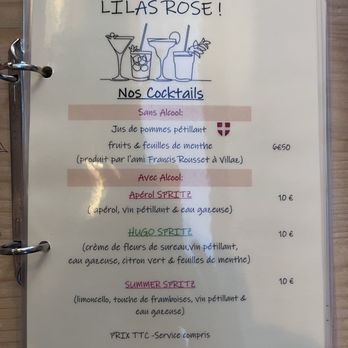 LILAS ROSE !
Nos Cocktails
Sans Alcool:
Jus de pommes pétillant
fruits & feuilles de menthe
(produit par l'ami Francis Rousset à Villaz) 6€50
Avec Alcool:
Apérol SPRITZ 10 €
( apérol, vin pétillant & eau gazeuse)
HUGO SPRITZ 10 €
(crème de fleurs de sureau,vin pétillant,
eau gazeuse, citron vert & feuilles de menthe)
SUMMER SPRITZ 10 €
(limoncello, touche de framboises, vin pétillant &
eau gazeuse)
PRIX TTC -Service compris